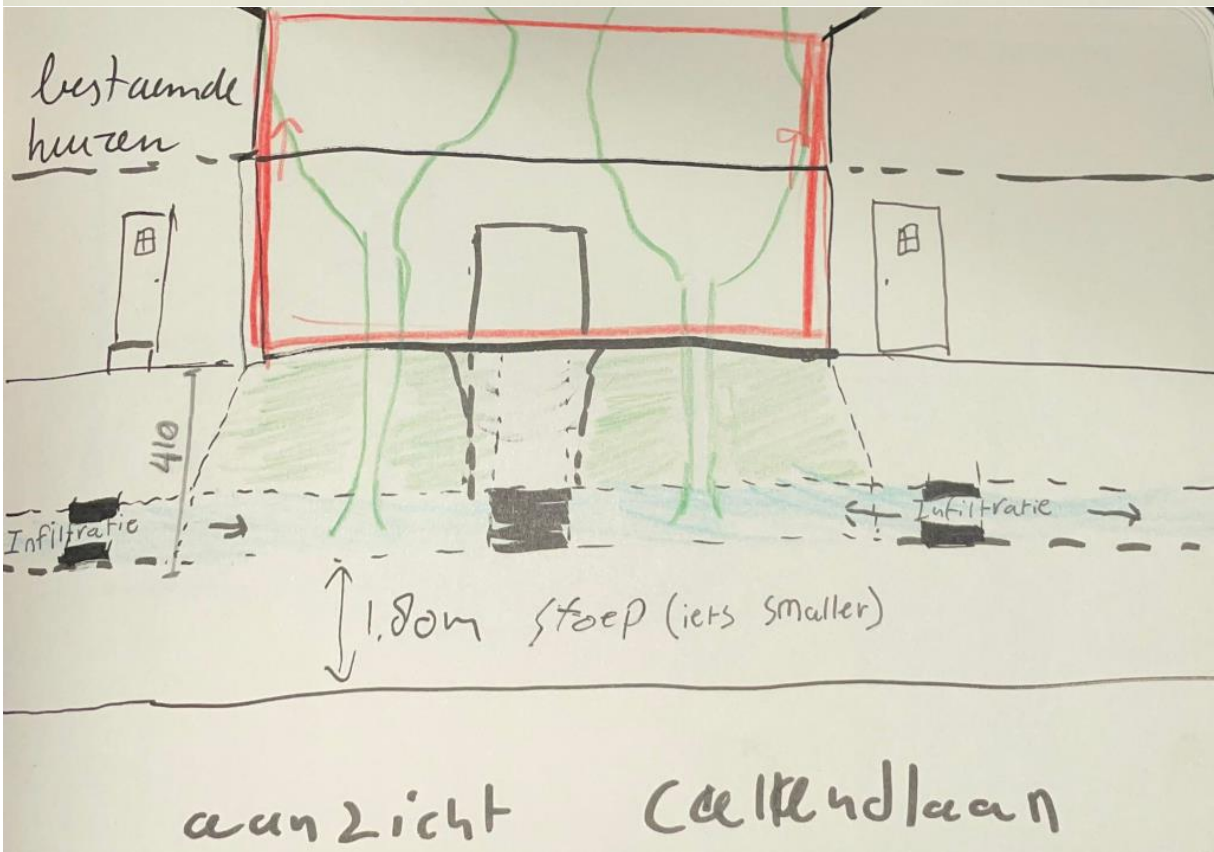 bestaande
huizen
410
Infiltratie
Infiltratie
1.80m stoep (iets smaller)
aanzicht